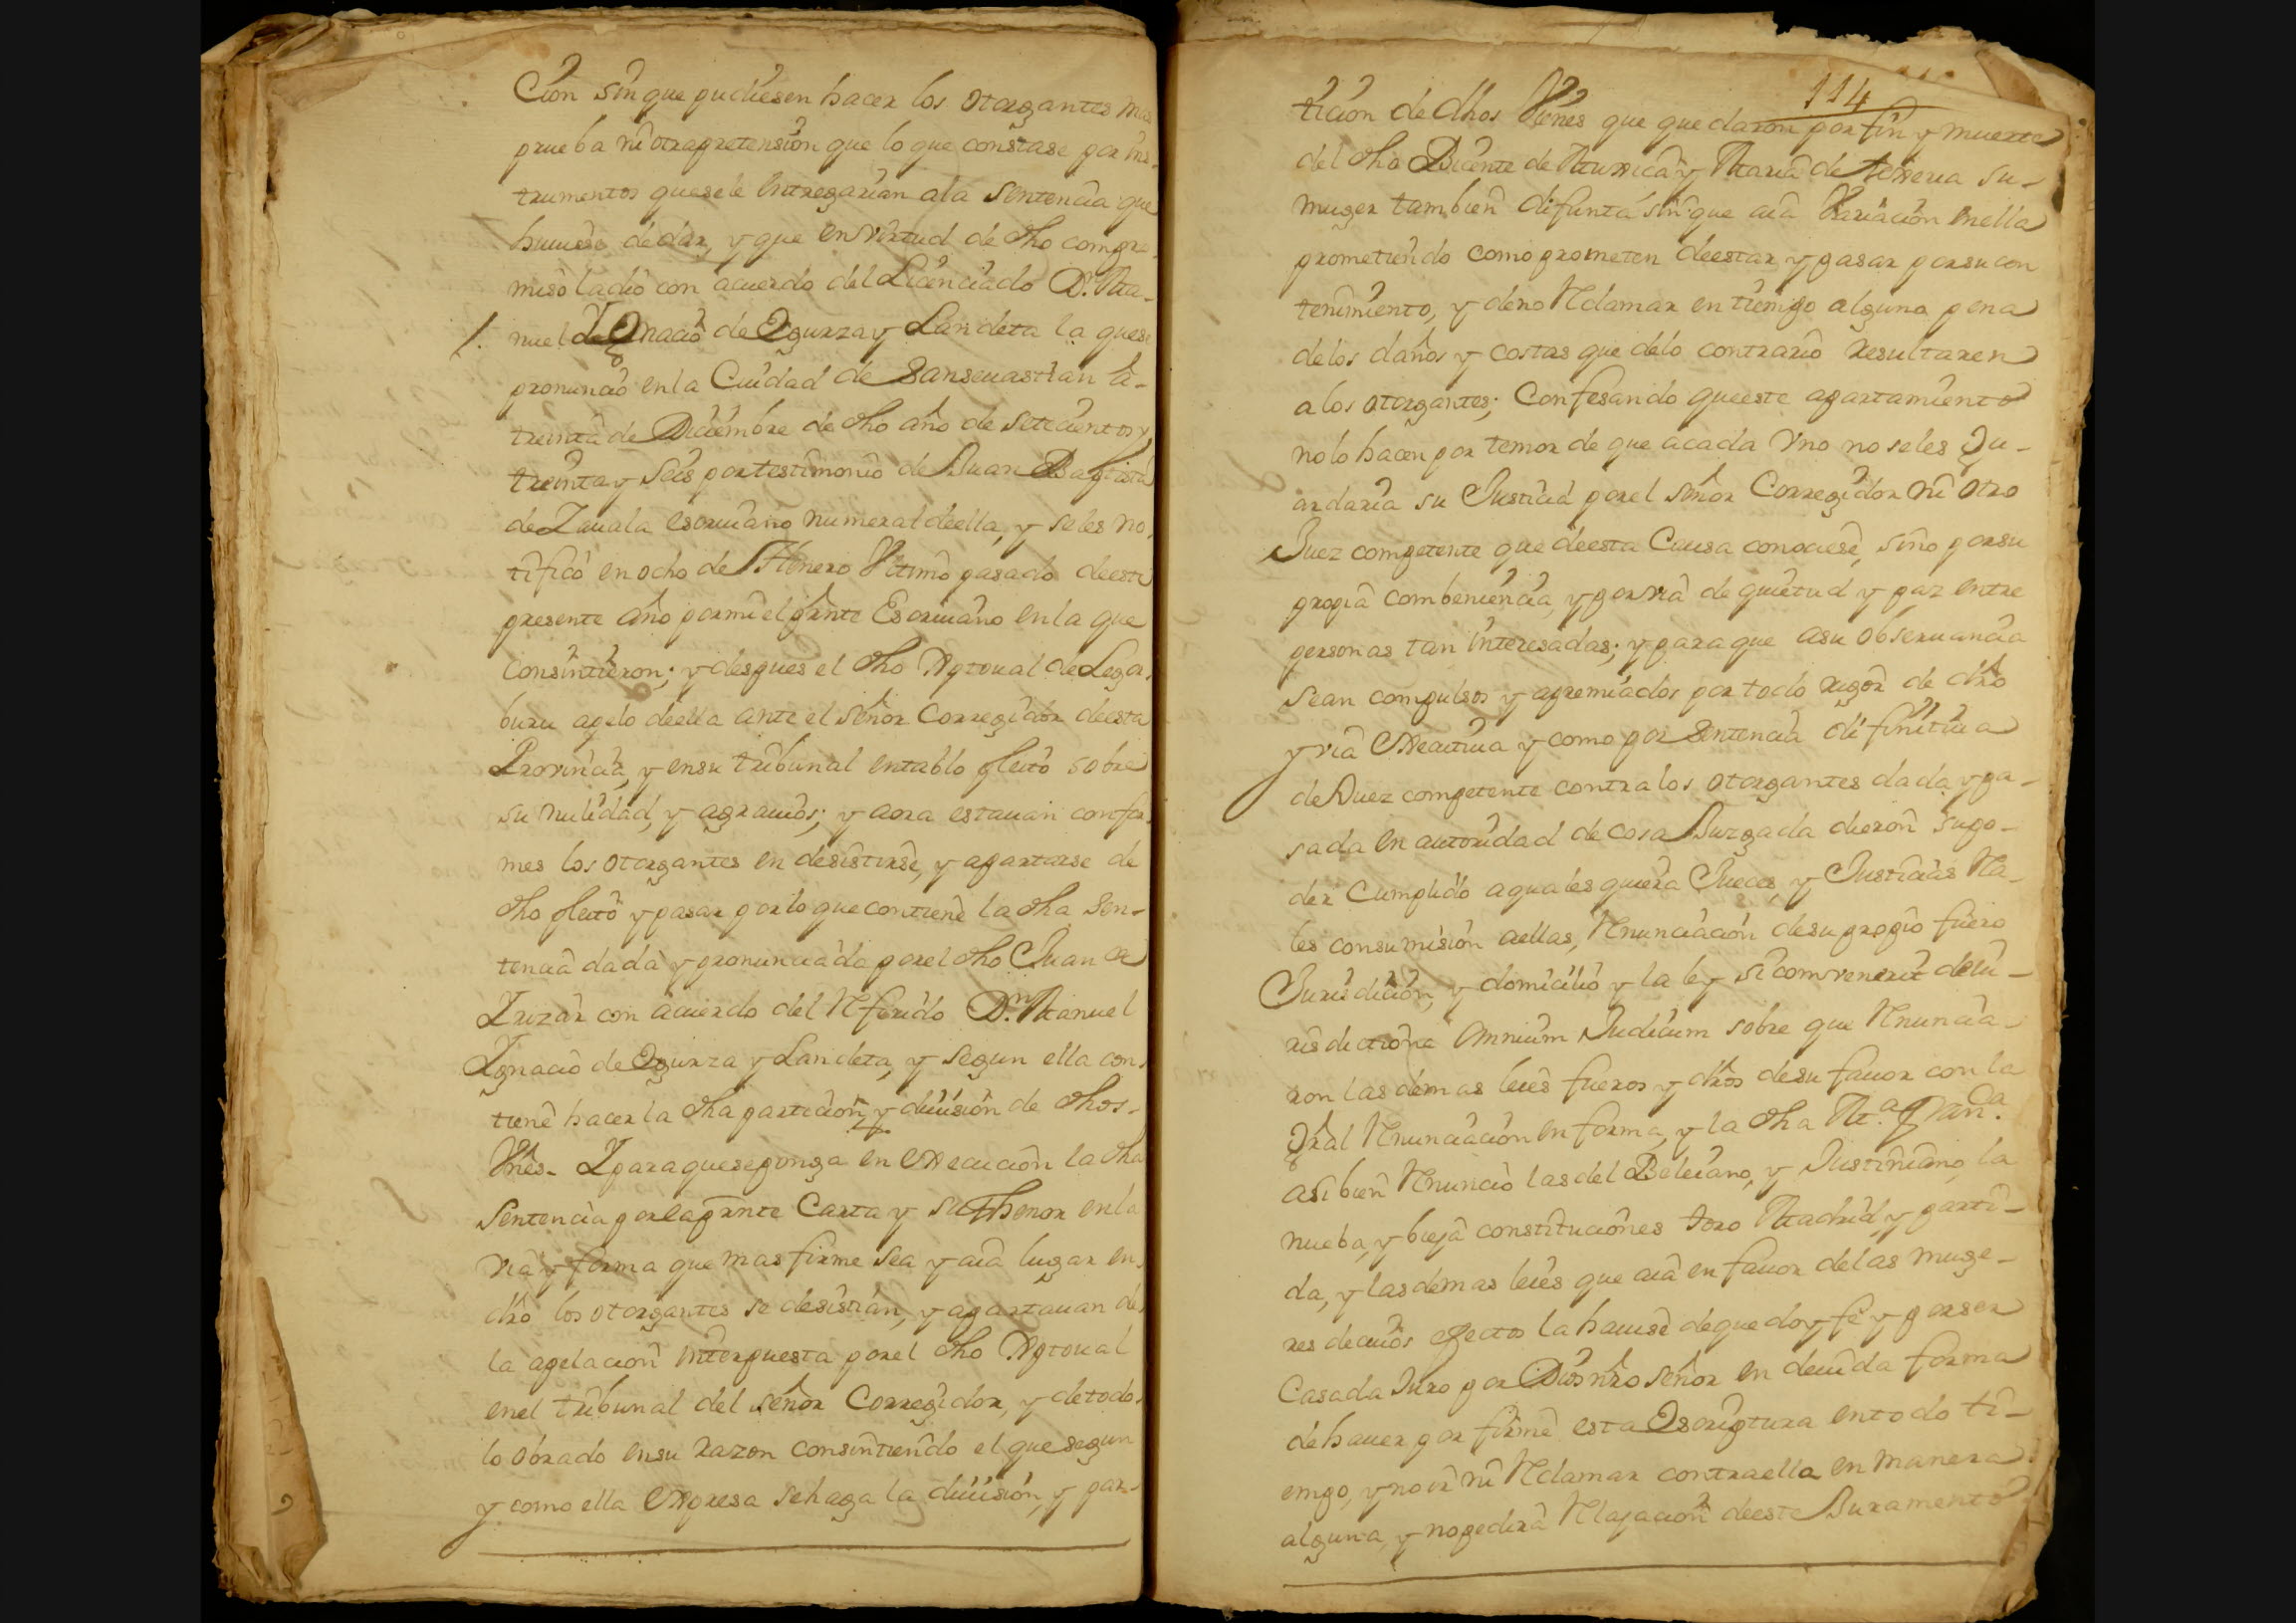 Cion sin que pudiesen hacer los otorgantes mas
prueba ni otra pretension que lo que constase por ins-
trumentos que se le entregarian a la sentencia que
huuiese de dar, y que en virtud de dho compro-
miso la dio con acuerdo del Licenciado Dn. Ma-
nuel Ignacio de Egurza y Landeta la que se
pronuncio en la Ciudad de Sanseuastian â
treinta de Diciembre de dho año de setecientos y
treinta y seis por testimonio de Juan Baptista
de Zauala escriuano numeral de ella, y se les no-
tificó en ocho de Henero vltimo pasado de este
presente año por mi el prnte Escriuano en la que
consintieron; y despues el dho Xptoual de Legar-
buru apelo de ella ante el señor Corregidor de esta
Prouincia, y en su tribunal entablo pleito sobre
su nulidad, y agrauios; y aora estauan confor-
mes los otorgantes en desistirse, y apartarse de
dho pleito y pasar por lo que contiene la dha Sen-
tencia dada y pronunciada por el dho Juan de
Yrizar con acuerdo del Referido Dn. Manuel
Ygnacio de Egurza y Landeta, y segun ella con-
tiene hacer la dha particion, y diuision de dhos-
Vnes- Y para que se ponga en execucion la dha
Sentencia por la prnte Carta y su thenor en la
via y forma que mas firme sea y aia lugar en
dro los otorgantes se desistian, y apartauan de
la apelacion interpuesta por el dho Xptoual
en el tribunal del señor Corregidor, y de todo
lo obrado en su razon consintiendo el que segun
y como ella expresa se haga la diuision, y par-
114
ticion de dhos Vienes que quedaron por fin y muerte
del dho Bicente de y Maria de su-
muger tambien difunta sin que aia Variacion en ella
prometiendo como prometen de estar y pasar por su con
tenimiento, y de no Reclamar en tiempo alguno pena
de los daños y costas que de lo contrario resultaren
a los otorgantes; Confesando que este apartamiento
no lo hacen por temor de que a cada vno no se les gu-
ardaria su Justicia por el señor Corregidor ni otro
Juez competente que de esta Causa conociese, sino por su
propia combeniencia, y por via de quietud y paz entre
personas tan interesadas; y para que a su obseruancia
sean compulsos y apremiados por todo rigor de dro
y via executiua y como por sentencia difinitiua
de Juez competente contra los otorgantes dada y pa-
sada en autoridad de cosa Juzgada dieron su po-
der Cumplido a quales quiera Jueces y Justicias Rea-
les con sumision a ellas, Renunciacion de su propio fuero
Jurisdicion, y domicilio y la ley si convenerit de iu-
risdictione omnium Judicum sobre que Renuncia-
ron las demas leies fueros y dros de su fauor con la
gral Renunciacion en forma, y la dha Ma. Franca.
asi bien Renuncio las del Beleiano, y Justiniano, la
nueba, y bieja constituciones toro Madrid, y parti-
da, y las demas leies que aia en fauor de las muge-
res de cuios efectos la hauise de que doy fe y por ser
Casada Juro por Dios nro señor en deuida forma
de hauer por firme esta Escriptura en todo ti-
empo, y no ir ni Reclamar contra ella en manera
alguna, y no pedira Relajacion de este Juramento